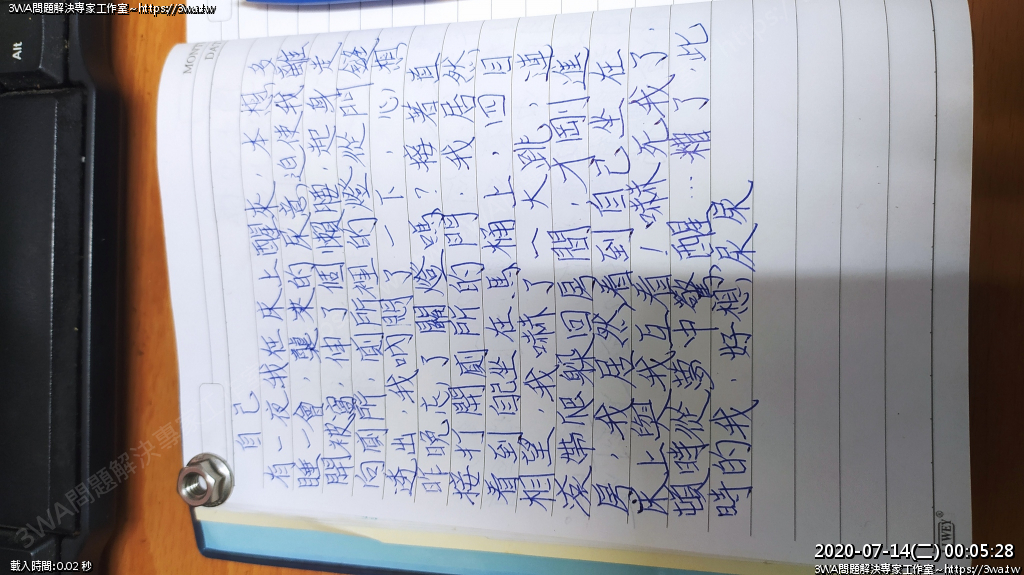 3WA問題解決專家工作室~https://3wa.tw
MON
DA
Alt
自己
有一夜我在床上醒來,本想多
睡一會,襲來的尿意迫使我離
開被窩,伸了個懶腰,起身走
向廁所,廁所裡的燈從門縫
透出,我愣了一下,心想
昨晚忘了關燈嗎?接著直
接打開廁所的門,我居然
看到自己坐在馬桶上,四目
相望,我嚇了一大跳,連
滾帶爬躲回房間,才剛進
房,我居然看到自己坐在
床上與我互看!嚇死我了,
頓時從夢中驚醒...糟了,此
時的我,好想尿尿
3WA問題解決專家
載入時間:0.02 秒
2020-07-14(二) 00:05:28
3WA問題解決專家工作室~https://3wa.tw